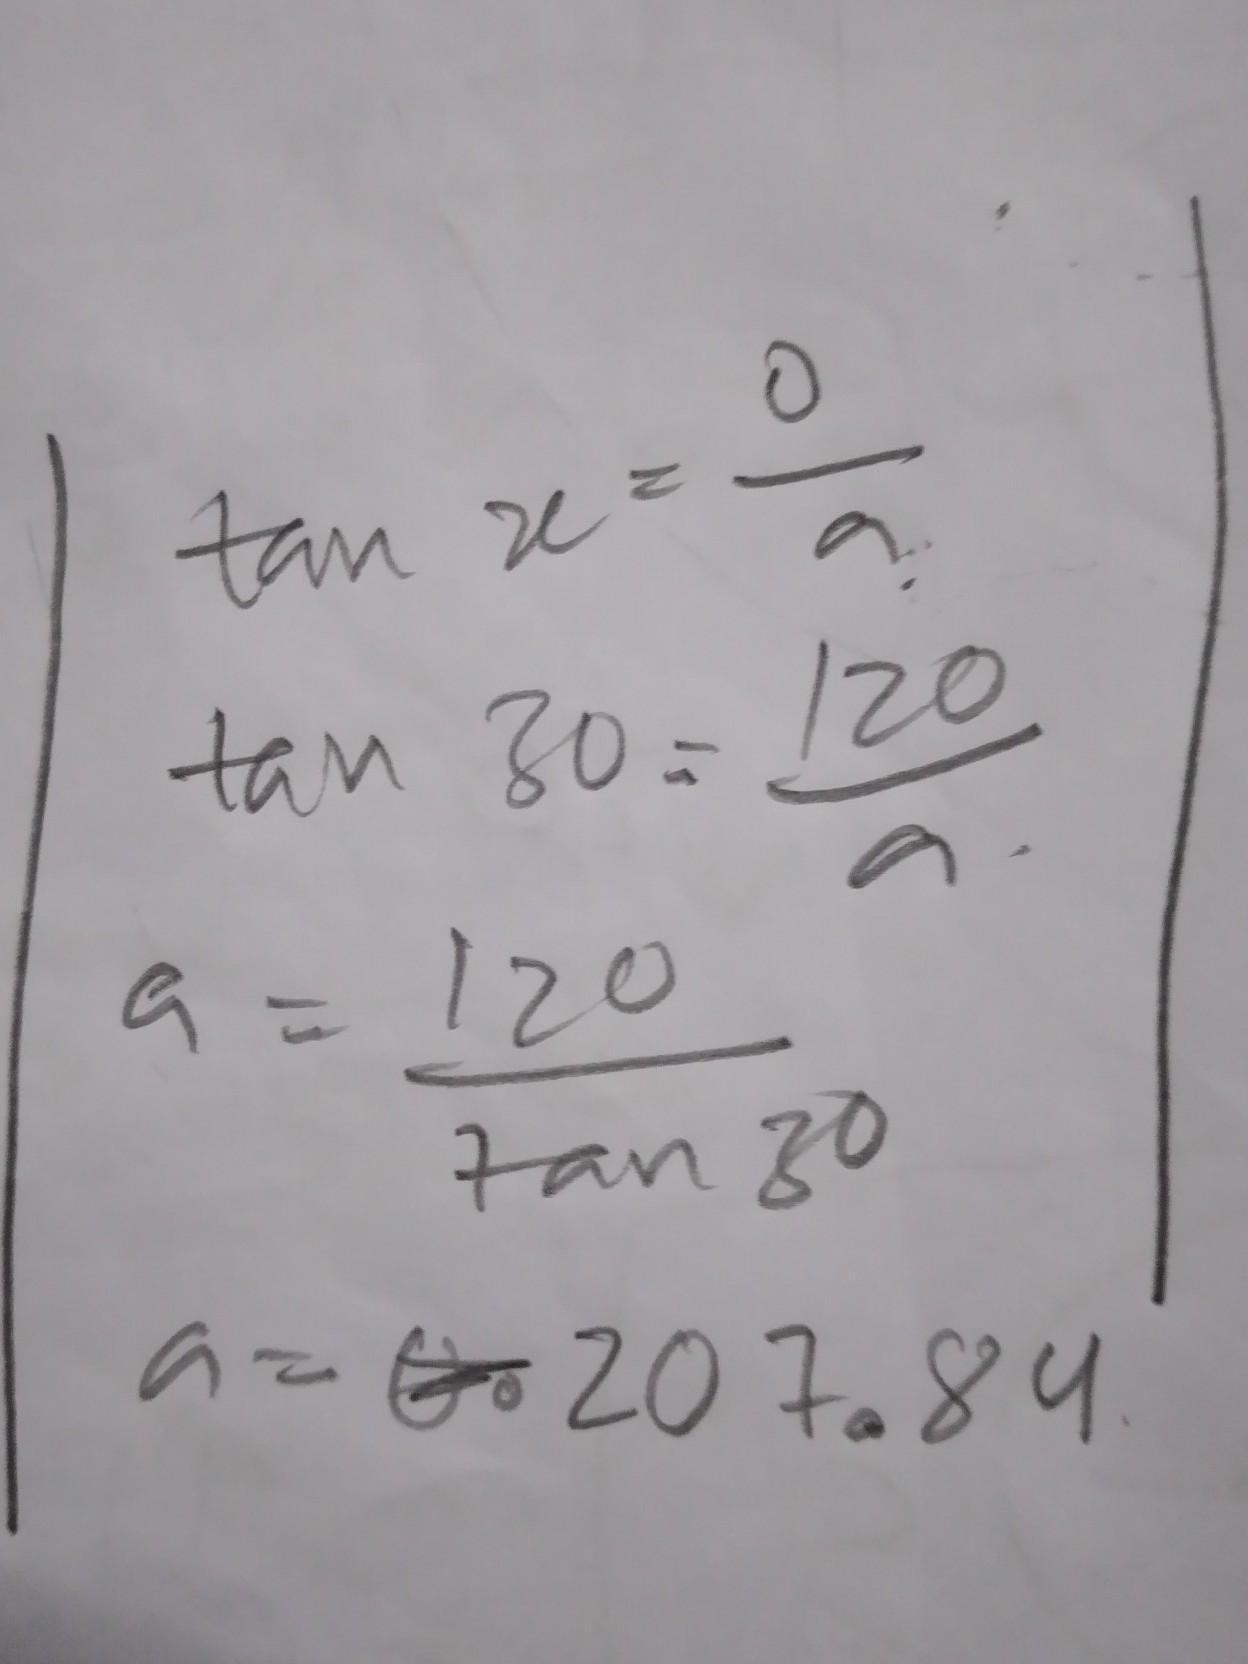 tan x = o/a.
tan 30 = 120/a.
a = 120/tan 30
a = 207.84.